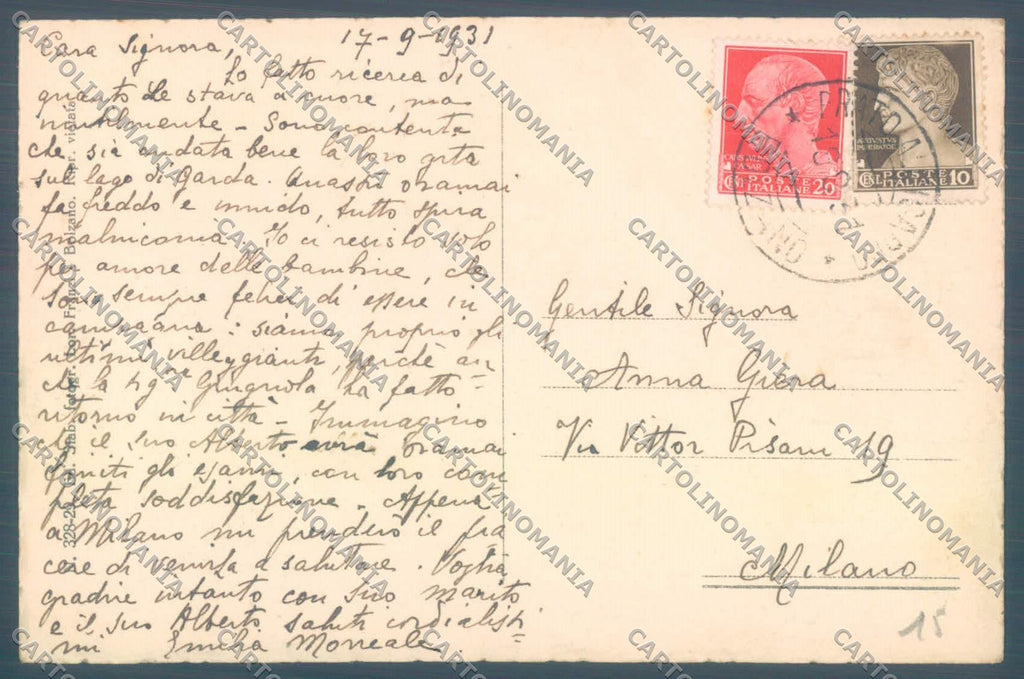 17-9-1931
Cara Signora,
Ho fatto ricerca di
quanto Le stava a cuore, ma
inutilmente - Sono contenta
che sia andata bene la loro gita
sul lago di Garda. Quassù oramai
fa freddo e umido, tutto spira
malinconia. Io ci resisto solo
per amore delle bambine, che
sono sempre felici di essere in
campagna: siamo proprio gli
ultimi villeggianti, perchè an-
che la sig. ha fatto
ritorno in città - Immagino
che il suo Alberto avrà oramai
finiti gli esami, con loro com
pleta soddisfazione. Appena
a Milano mi prenderò il pia
cere di venirla a salutare. Voglia
gradire intanto con suo marito
e il suo Alberto saluti cordialissi-
mi Emilia Monreale
POSTE ITALIANE 20
POSTE ITALIANE 10
Gentile Signora
Anna Giera
Via Vittor Pisani 19
Milano
15
CARTOLINOMANIA